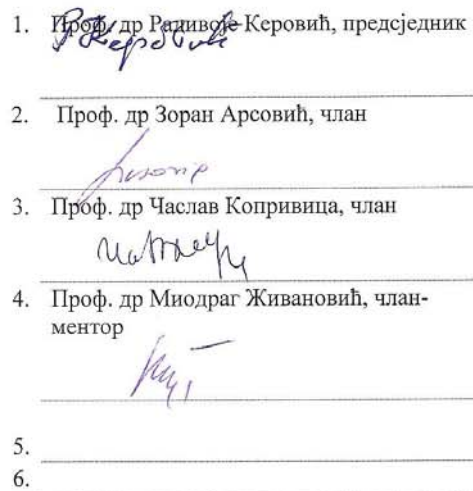 1. Проф. др Радивоје Керовић, предсједник
2. Проф. др Зоран Арсовић, члан
3. Проф. др Часлав Копривица, члан
4. Проф. др Миодраг Живановић, члан-
ментор
5.
6.